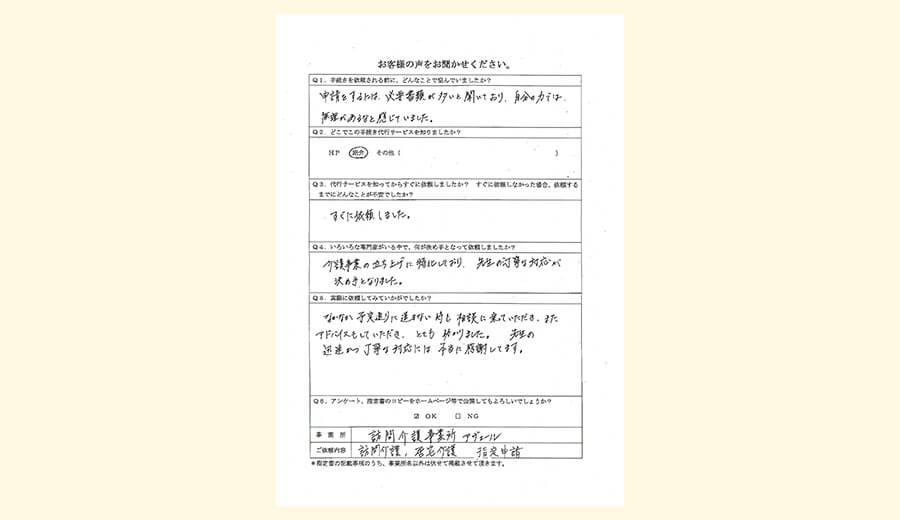 お客様の声をお聞かせください。
Q1．手続きを依頼される前に、どんなことで悩んでいましたか？
申請をするには、必要書類が多いと聞いており、自分の力では、
無理があるなと感じていました。
Q2．どこでこの手続き代行サービスを知りましたか？
HP 紹介 その他（ ）
Q3．代行サービスを知ってからすぐに依頼しましたか？ すぐに依頼しなかった場合、依頼する
までにどんなことが不安でしたか？
すぐに依頼しました。
Q4．いろいろな専門家がいる中で、何が決め手となって依頼しましたか？
介護事業の立ち上げに特化しており、先生の丁寧な対応が
決め手となりました。
Q5．実際に依頼してみていかがでしたか？
なかなか予定通りに進まない時も相談に乗っていただき、また
アドバイスもしていただき、とても助かりました。 先生の
迅速かつ丁寧な対応には本当に感謝してます。
Q6．アンケート、指定書のコピーをホームページ等で公開してもよろしいでしょうか？
☑ OK □ NG
事業所 訪問介護事業所 アヴェール
ご依頼内容 訪問介護，居宅介護 指定申請
＊指定書の記載事項のうち、事業所名以外は伏せて掲載させて頂きます。